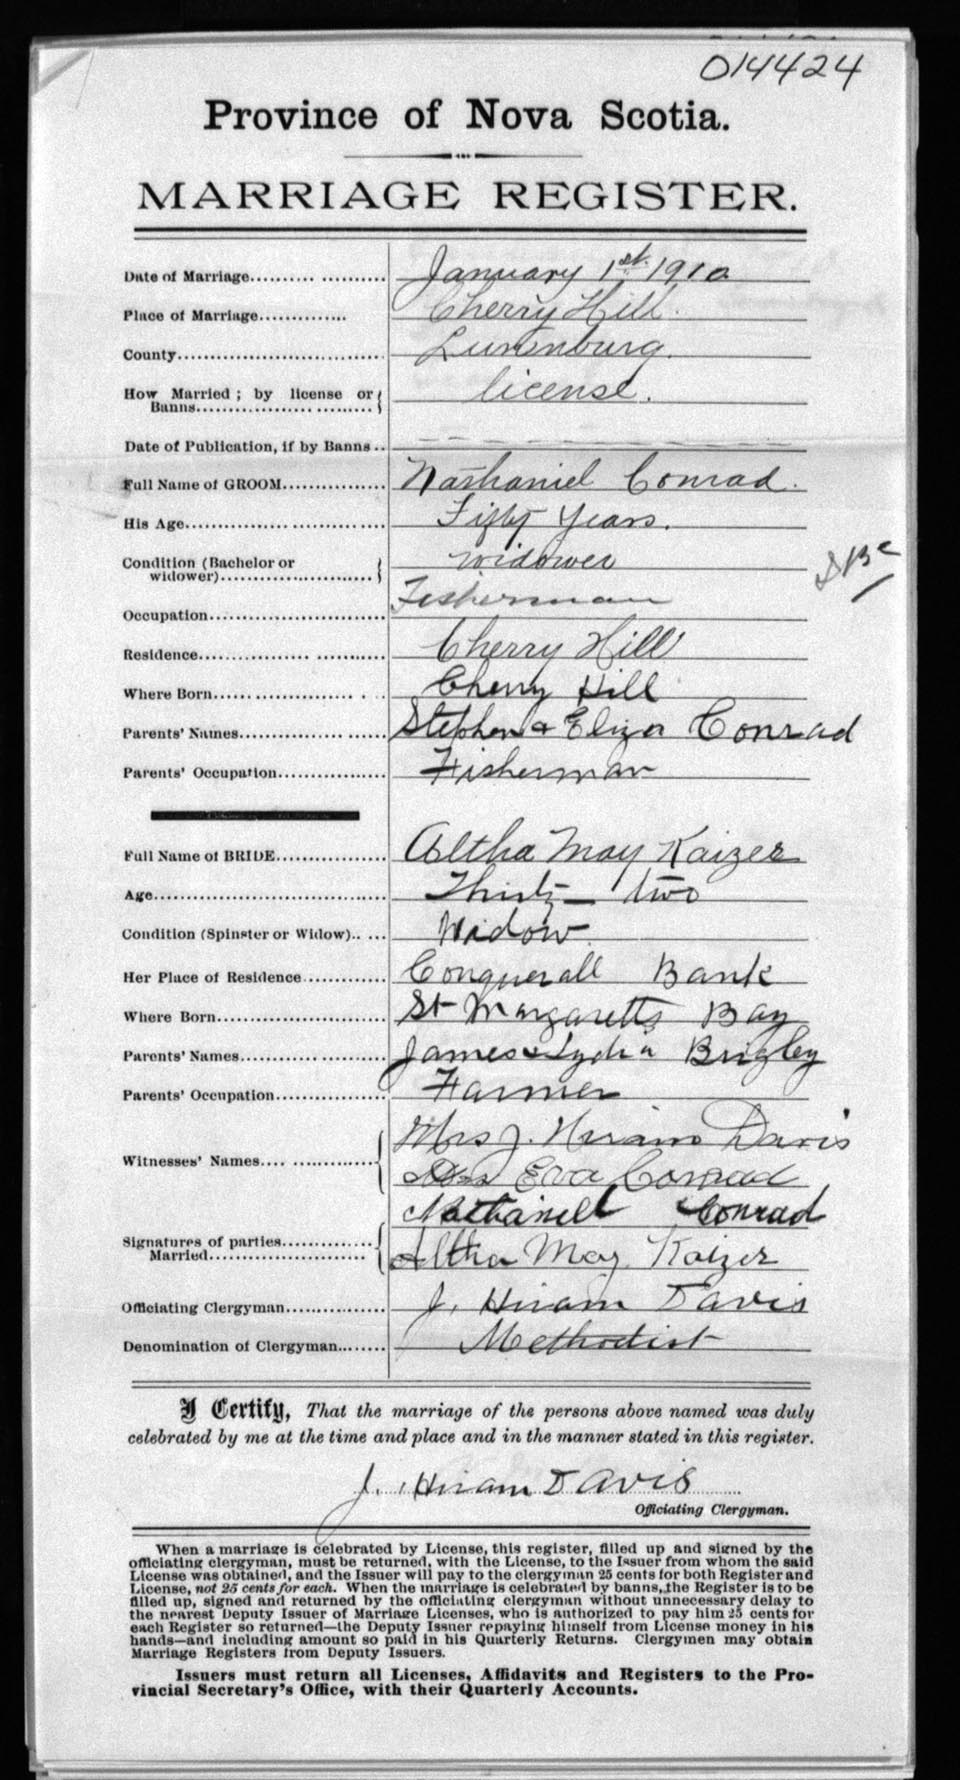 014424
Province of Nova Scotia.
MARRIAGE REGISTER.
Date of Marriage.......... ........... January 1st. 1910
Place of Marriage............. Cherry Hill.
County................................ Lunenburg.
How Married ; by license or
Banns.................. ........... license.
Date of Publication, if by Banns .. — — — — —
Full Name of GROOM................ Nathaniel Conrad.
His Age............................... Fifty Years.
Condition (Bachelor or
widower)........................... widower
Occupation........................... Fisherman
Residence................. ........... Cherry Hill
Where Born...... ............... . . . Cherry Hill
Parents' Names................ ....... Stephen & Eliza Conrad
Parents' Occupation................. Fisherman
Full Name of BRIDE................. Altha May Kaizer
Age.................................... Thirty-two
Condition (Spinster or Widow).. ... Widow
Her Place of Residence............. Conquerall Bank
Where Born.......................... St Margaretts Bay
Parents' Names....................... James & Lydia Brigley
Parents' Occupation................. Farmer
Mrs J. Hiram Davis
Witnesses' Names.... .............. Eva Conrad
Nathaniell Conrad
Signatures of parties..............
Married....................... Altha May Kaizer
Officiating Clergyman................ J. Hiram Davis
Denomination of Clergyman........ Methodist
I Certify, That the marriage of the persons above named was duly
celebrated by me at the time and place and in the manner stated in this register.
J. Hiram Davis
Officiating Clergyman.
When a marriage is celebrated by License, this register, filled up and signed by the
officiating clergyman, must be returned, with the License, to the Issuer from whom the said
License was obtained, and the Issuer will pay to the clergyman 25 cents for both Register and
License, not 25 cents for each. When the marriage is celebrated by banns, the Register is to be
filled up, signed and returned by the officiating clergyman without unnecessary delay to
the nearest Deputy Issuer of Marriage Licenses, who is authorized to pay him 25 cents for
each Register so returned—the Deputy Issuer repaying himself from License money in his
hands—and including amount so paid in his Quarterly Returns. Clergymen may obtain
Marriage Registers from Deputy Issuers.
Issuers must return all Licenses, Affidavits and Registers to the Pro-
vincial Secretary's Office, with their Quarterly Accounts.